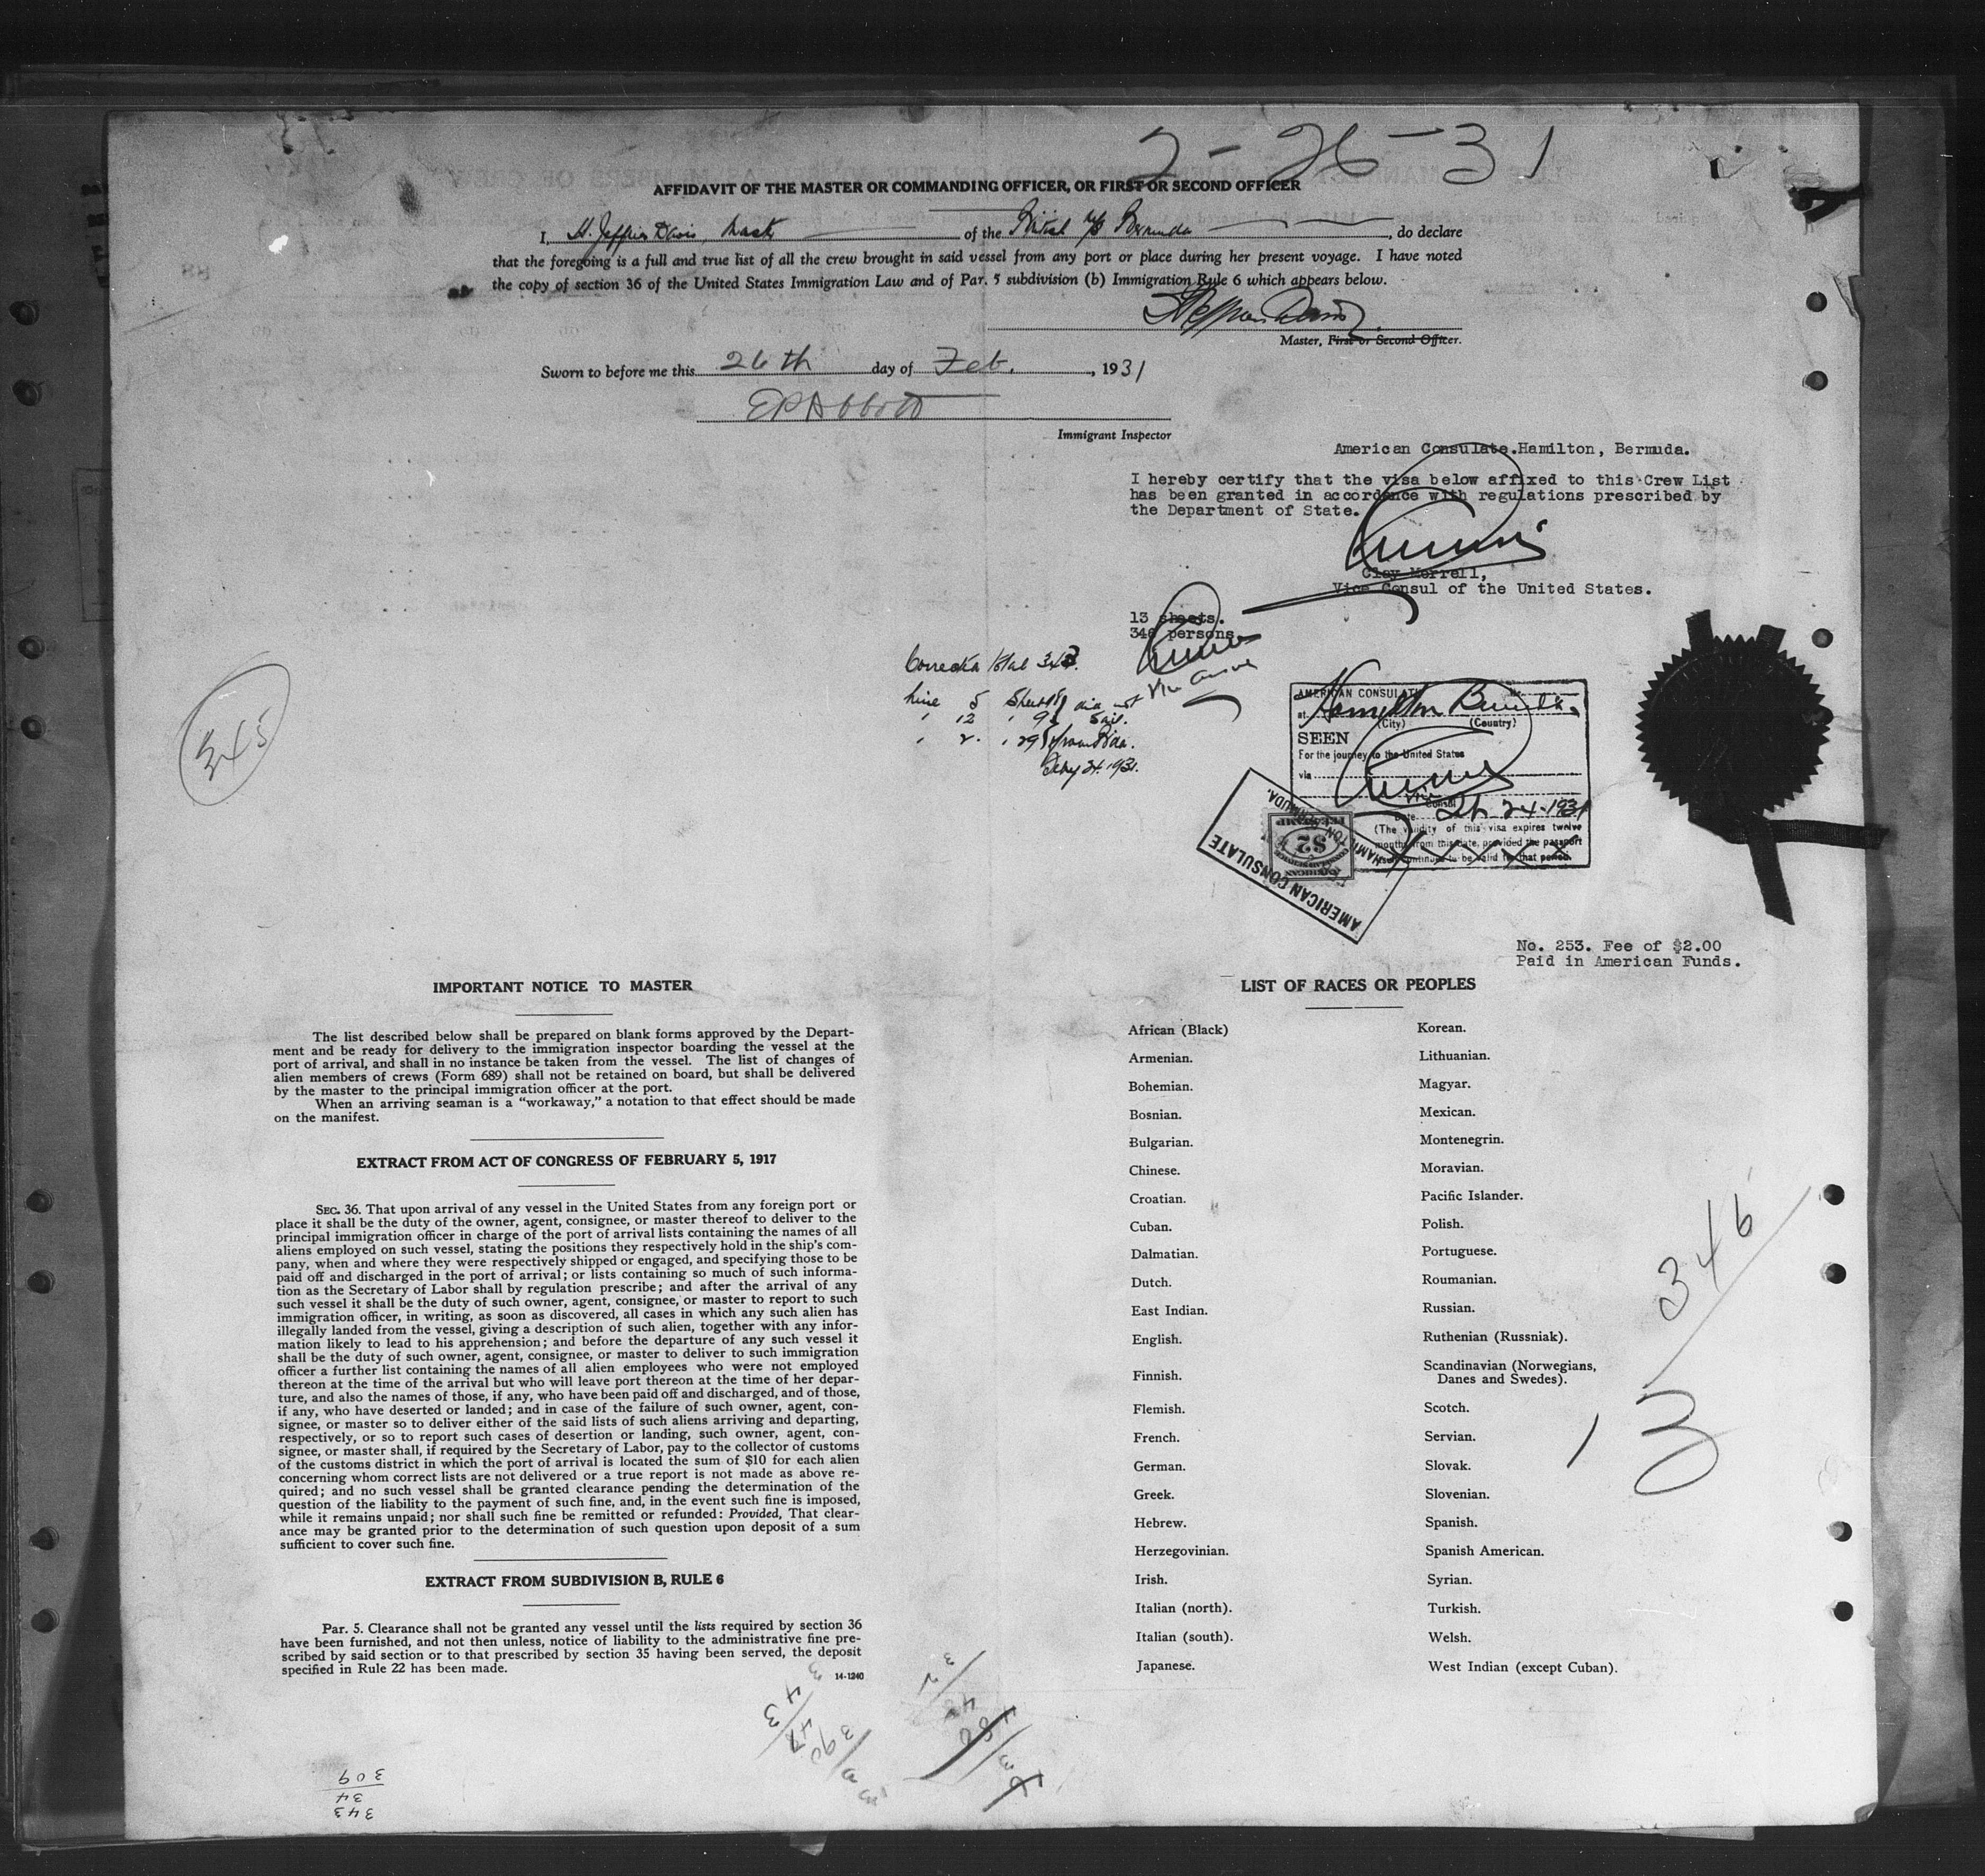 2-26-31
AFFIDAVIT OF THE MASTER OR COMMANDING OFFICER, OR FIRST OR SECOND OFFICER
I, H. Jeffries Davis, Master of the British M/V Bermuda, do declare
that the foregoing is a full and true list of all the crew brought in said vessel from any port or place during her present voyage. I have noted
the copy of section 36 of the United States Immigration Law and of Par. 5 subdivision (b) Immigration Rule 6 which appears below.
H Jeffries Davis
Master, First or Second Officer.
Sworn to before me this 26th day of Feb., 1931
EPAbbott
Immigrant Inspector
American Consulate.Hamilton, Bermuda.
I hereby certify that the visa below affixed to this Crew List
has been granted in accordance with regulations prescribed by
the Department of State.
Clay Merrell,
Vice Consul of the United States.
13 sheets.
346 persons.
Total 343.
line 5 Sheet
12 9 sail
2. 29 from Bda.
Feby 24. 1931.
345
AMERICAN CONSULATE
at Hamilton Bermuda.
(City) (Country)
SEEN
For the journey to the United States
via
Vice Consul
Date Feb. 24-1931
(The validity of this visa expires twelve
months from this date, provided the passport
continues to be valid for that period.
AMERICAN CONSULATE
HAMILTON BERMUDA.
AMERICAN
$2
FEE STAMP
No. 253. Fee of $2.00
Paid in American Funds.
IMPORTANT NOTICE TO MASTER
The list described below shall be prepared on blank forms approved by the Depart-
ment and be ready for delivery to the immigration inspector boarding the vessel at the
port of arrival, and shall in no instance be taken from the vessel. The list of changes of
alien members of crews (Form 689) shall not be retained on board, but shall be delivered
by the master to the principal immigration officer at the port.
When an arriving seaman is a "workaway," a notation to that effect should be made
on the manifest.
EXTRACT FROM ACT OF CONGRESS OF FEBRUARY 5, 1917
SEC. 36. That upon arrival of any vessel in the United States from any foreign port or
place it shall be the duty of the owner, agent, consignee, or master thereof to deliver to the
principal immigration officer in charge of the port of arrival lists containing the names of all
aliens employed on such vessel, stating the positions they respectively hold in the ship's com-
pany, when and where they were respectively shipped or engaged, and specifying those to be
paid off and discharged in the port of arrival; or lists containing so much of such informa-
tion as the Secretary of Labor shall by regulation prescribe; and after the arrival of any
such vessel it shall be the duty of such owner, agent, consignee, or master to report to such
immigration officer, in writing, as soon as discovered, all cases in which any such alien has
illegally landed from the vessel, giving a description of such alien, together with any infor-
mation likely to lead to his apprehension; and before the departure of any such vessel it
shall be the duty of such owner, agent, consignee, or master to deliver to such immigration
officer a further list containing the names of all alien employees who were not employed
thereon at the time of the arrival but who will leave port thereon at the time of her depar-
ture, and also the names of those, if any, who have been paid off and discharged, and of those,
if any, who have deserted or landed; and in case of the failure of such owner, agent, con-
signee, or master so to deliver either of the said lists of such aliens arriving and departing,
respectively, or so to report such cases of desertion or landing, such owner, agent, con-
signee, or master shall, if required by the Secretary of Labor, pay to the collector of customs
of the customs district in which the port of arrival is located the sum of $10 for each alien
concerning whom correct lists are not delivered or a true report is not made as above re-
quired; and no such vessel shall be granted clearance pending the determination of the
question of the liability to the payment of such fine, and, in the event such fine is imposed,
while it remains unpaid; nor shall such fine be remitted or refunded: Provided, That clear-
ance may be granted prior to the determination of such question upon deposit of a sum
sufficient to cover such fine.
EXTRACT FROM SUBDIVISION B, RULE 6
Par. 5. Clearance shall not be granted any vessel until the lists required by section 36
have been furnished, and not then unless, notice of liability to the administrative fine pre-
scribed by said section or to that prescribed by section 35 having been served, the deposit
specified in Rule 22 has been made.
14-1240
LIST OF RACES OR PEOPLES
African (Black)
Armenian.
Bohemian.
Bosnian.
Bulgarian.
Chinese.
Croatian.
Cuban.
Dalmatian.
Dutch.
East Indian.
English.
Finnish.
Flemish.
French.
German.
Greek.
Hebrew.
Herzegovinian.
Irish.
Italian (north).
Italian (south).
Japanese.
Korean.
Lithuanian.
Magyar.
Mexican.
Montenegrin.
Moravian.
Pacific Islander.
Polish.
Portuguese.
Roumanian.
Russian.
Ruthenian (Russniak).
Scandinavian (Norwegians,
Danes and Swedes).
Scotch.
Servian.
Slovak.
Slovenian.
Spanish.
Spanish American.
Syrian.
Turkish.
Welsh.
West Indian (except Cuban).
346
13
343
47
390
343
34
309